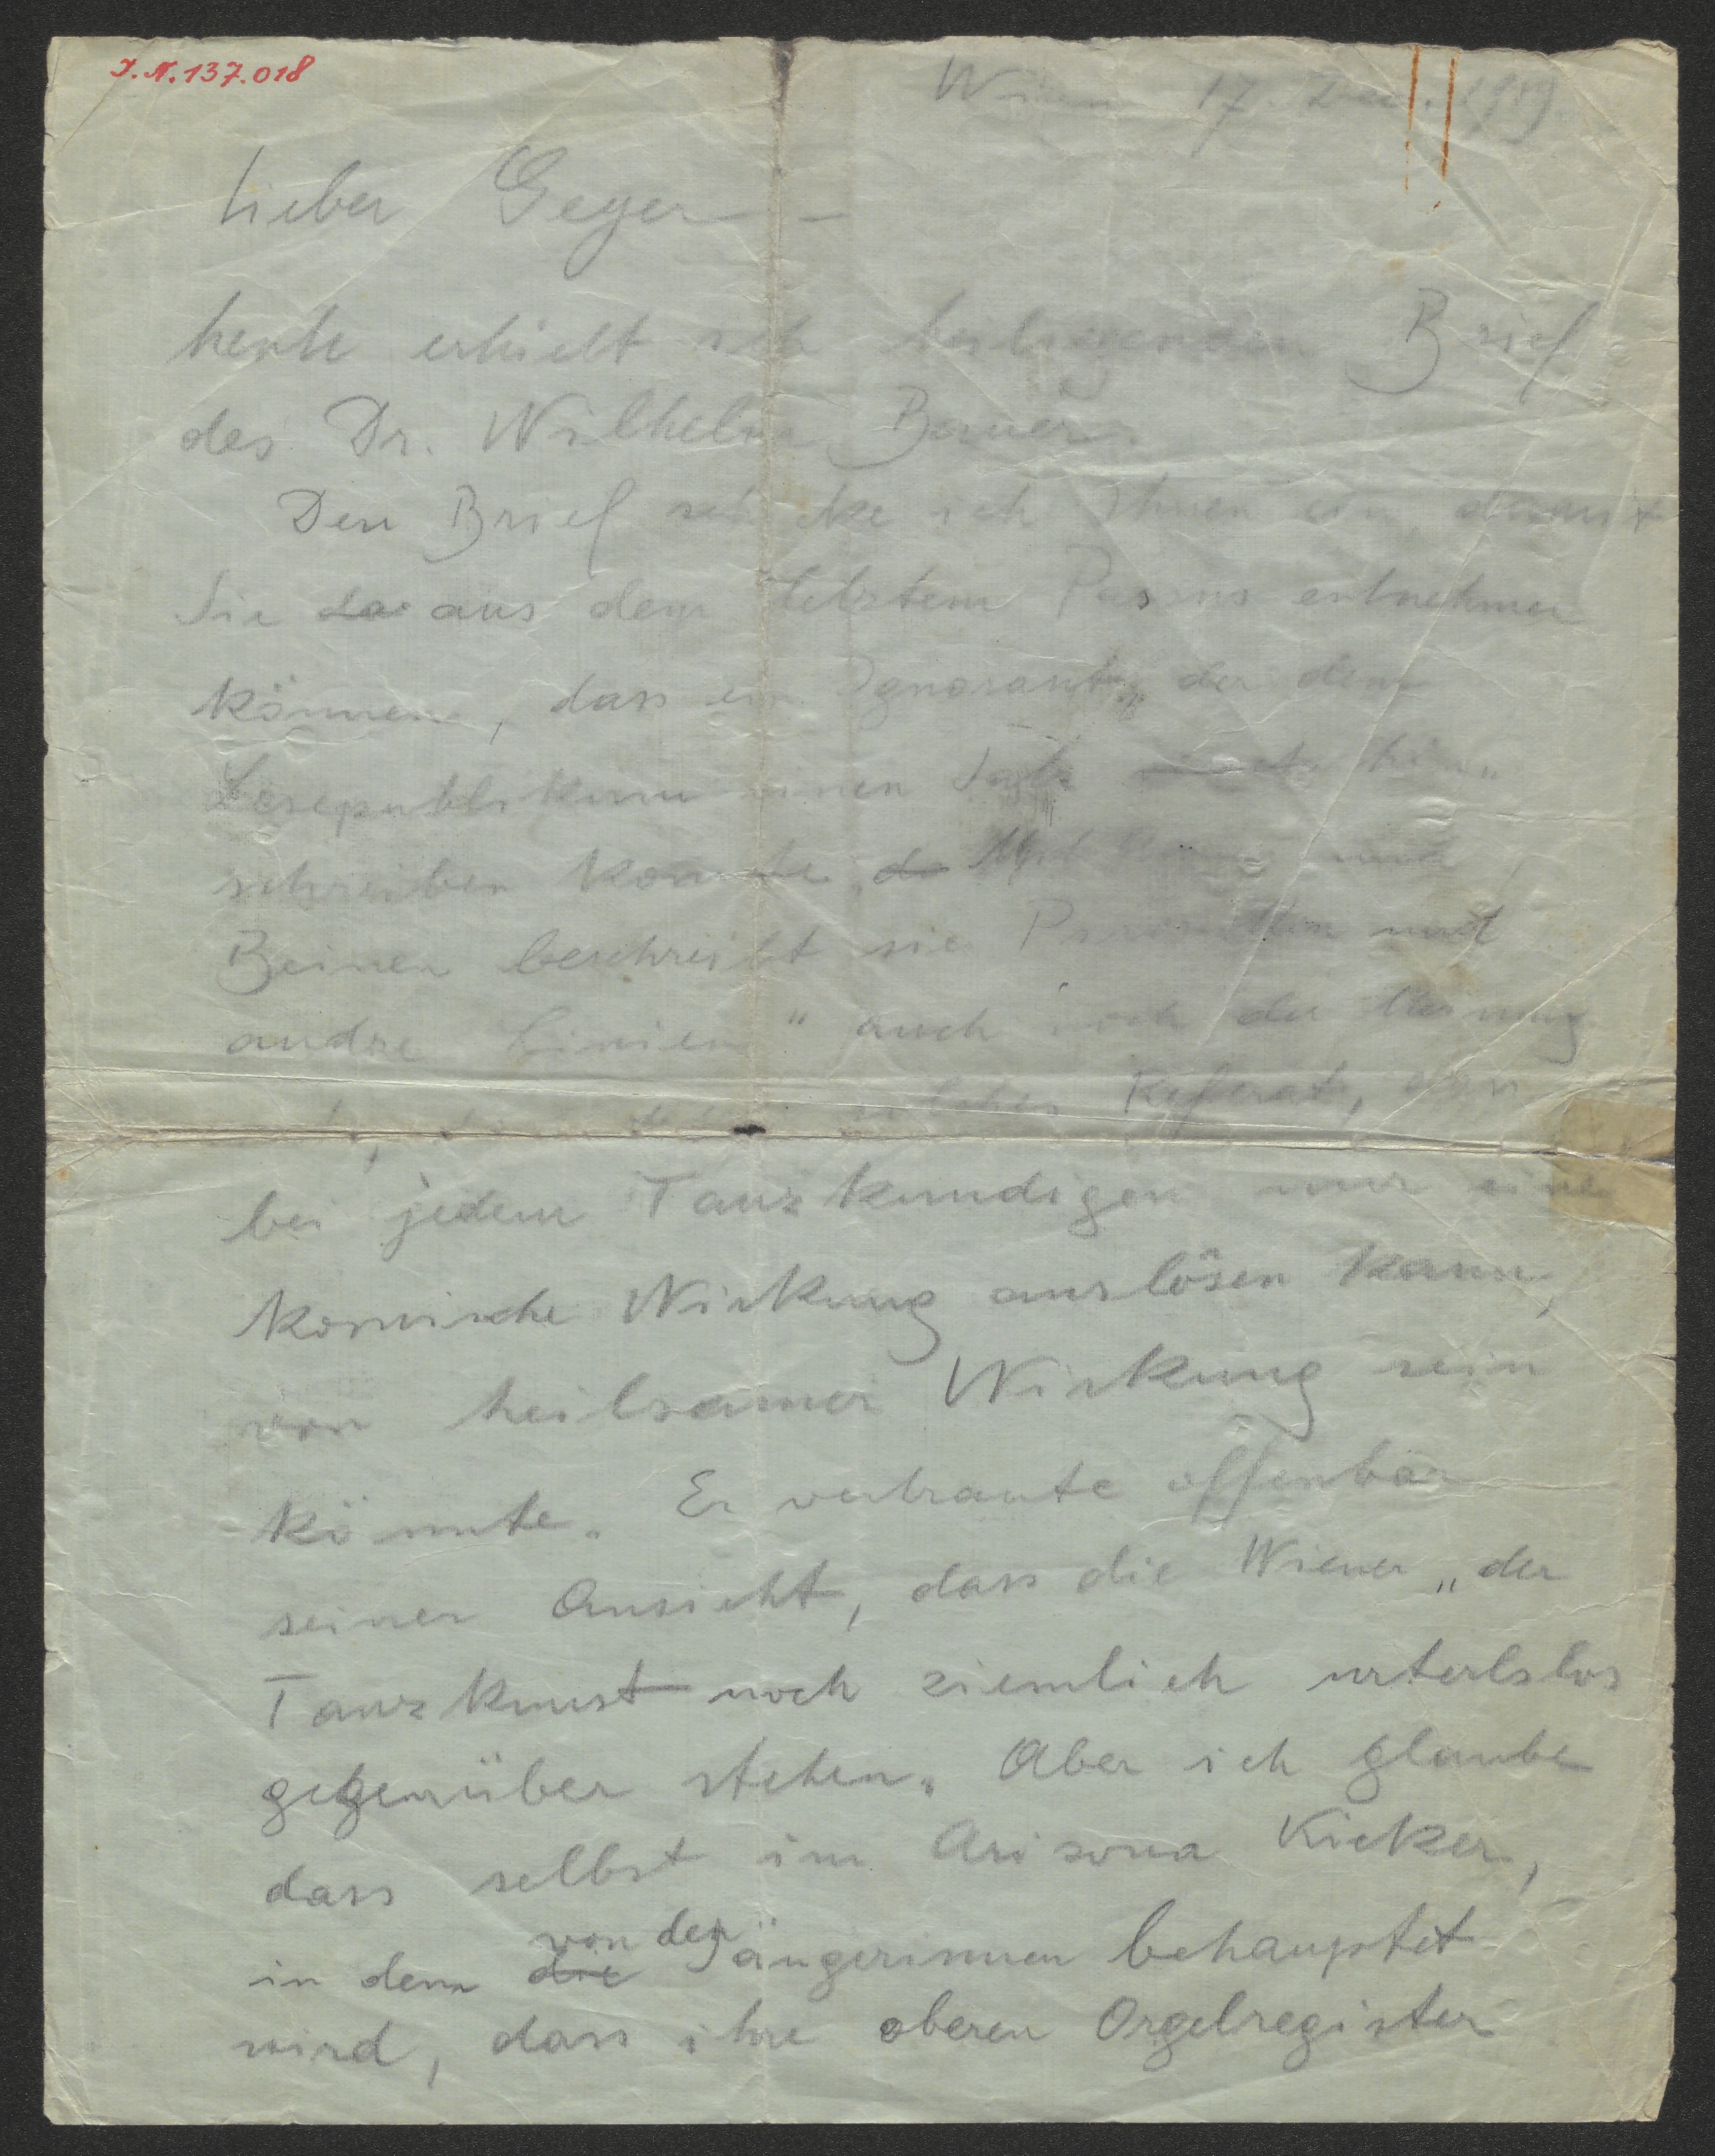 J. N. 137.018
Wien 17. Dez. 1919.
Lieber Geyer –
heute erhielt ich beiliegenden Brief
des Dr. Wilhelm Bauer.
Den Brief schicke ich Ihnen ein, damit
Sie aus dem letztem Passus entnehmen
können, dass ein Ignorant, der dem
Lesepublikum einen Satz hin
schreiben konnte, „Mit und
Beinen beschreibt sie und
andre Linien" auch noch der Meinung
solches Referat, das
bei jedem Tanzkundigen nur eine
komische Wirkung auslösen kann,
von heilsamer Wirkung sein
könnte. Er vertraute offenbar
seiner Ansicht, dass die Wiener „der
Tanzkunst noch ziemlich urteilslos
gegenüber stehen. Aber ich glaube
dass selbst im Arizona Kicker,
in dem die von den Sängerinnen behauptet
wird, dass ihre oberen Orgelregister